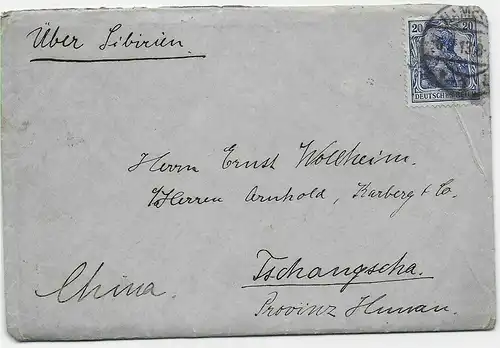 Über Sibirien.
20 20
DEUTSCHES REICH
Herrn Ernst Wollheim.
p/Herren Arnhold, Karberg & Co.
Tschangscha.
China.
Provinz Hunan.